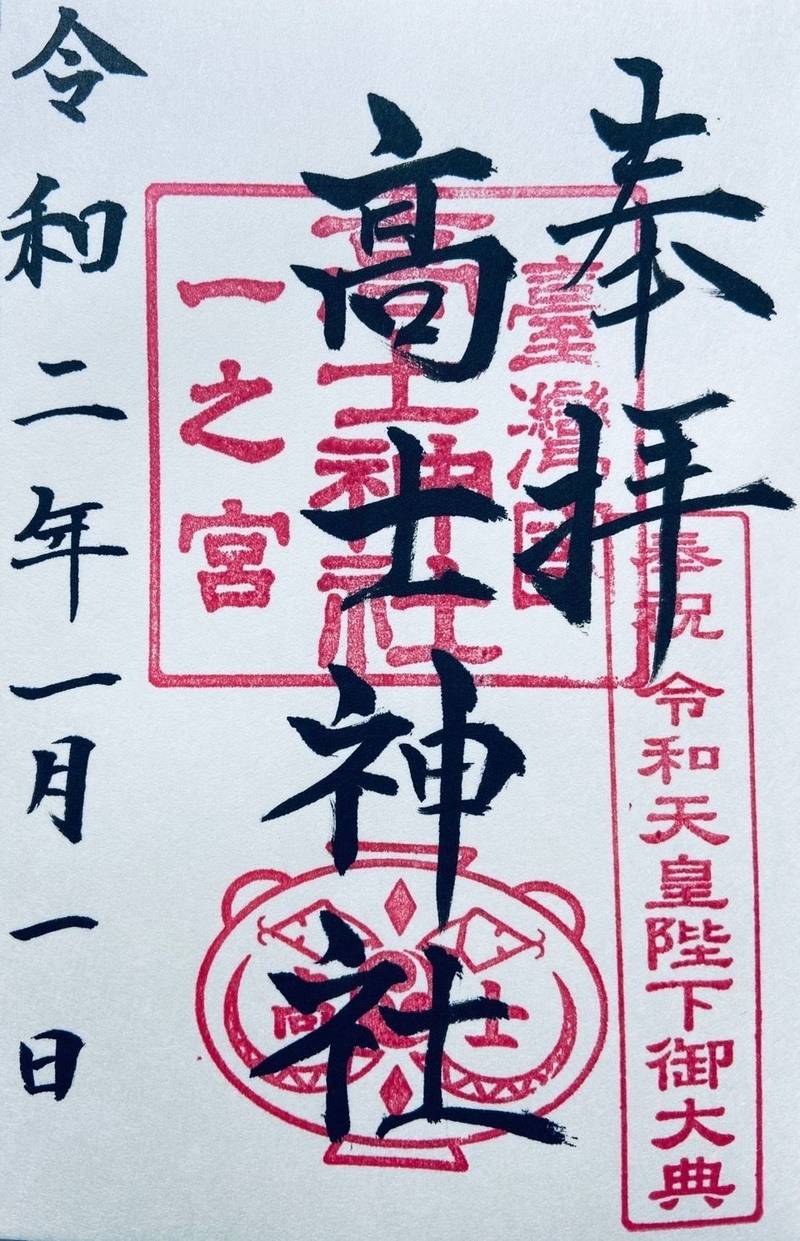 奉拝
高士神社
令和二年一月一日
臺灣國
高士神社
一之宮
奉祝 令和天皇陛下御大典
高 士